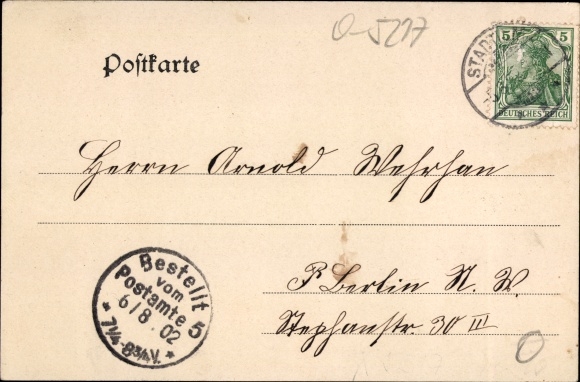 O-5217
Postkarte
5 5
DEUTSCHES REICH
Herrn Arnold Wehrhan
Berlin N. W.
Stephanstr. 30 III
Bestellt
vom
Postamte 5
6/8. 02
* 7¼-8¾V. *
0